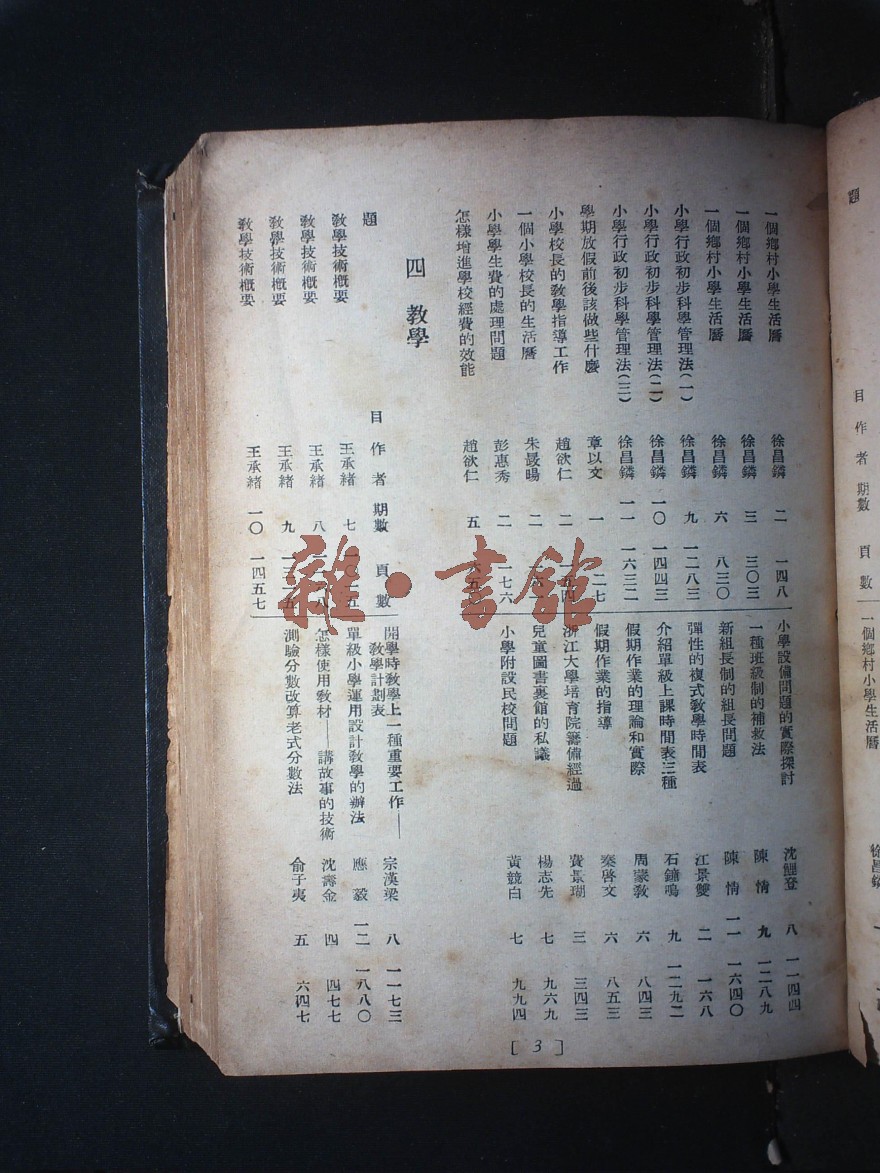 一個鄉村小學生活曆 徐昌鏻 二 一四八
一個鄉村小學生活曆 徐昌鏻 三 三〇三
一個鄉村小學生活曆 徐昌鏻 六 八三〇
小學行政初步科學管理法(一) 徐昌鏻 九 一二八三
小學行政初步科學管理法(二) 徐昌鏻 一〇 一四四三
小學行政初步科學管理法(三) 徐昌鏻 一一 一六三二
學期放假前後該做些什麼 章以文 一 二七
小學校長的敎學指導工作 趙欲仁 二 一五四
一個小學校長的生活曆 朱最暘 二
小學學生費的處理問題 彭惠秀 二 一七六
怎樣增進學校經費的效能 趙欲仁 五
四 敎學
題 目 作 者 期數 頁 數
敎學技術槪要 王承緒 七
敎學技術槪要 王承緒 八
敎學技術槪要 王承緒 九
敎學技術槪要 王承緒 一〇 一四五七
小學設備問題的實際探討 沈鯉登 八 一一四四
一種班級制的補救法 陳 情 九 一二八九
新組長制的組長問題 陳 情 一一 一六四〇
彈性的複式敎學時間表 江景雙 二 一六八
介紹單級上課時間表三種 石鏞鳴 九 一二九二
假期作業的理論和實際 周蒙敎 六 八四三
假期作業的指導 秦啓文 六 八五三
浙江大學培育院籌備經過 費景瑚 三 三四三
兒童圖書裏館的私議 楊志先 七 九六九
小學附設民校問題 黃競白 七 九九四
開學時敎學上一種重要工作——
敎學計劃表 宗漢梁 八 一一七三
單級小學運用設計敎學的辦法 應 毅 一二 一八八〇
怎樣使用敎材——講故事的技術 沈壽金 四 四七七
測驗分數改算老式分數法 俞子夷 五 六四七
[ 3 ]
雜·書館
題
目 作 者 期數 頁 數
一個鄉村小學生活曆
徐昌鏻